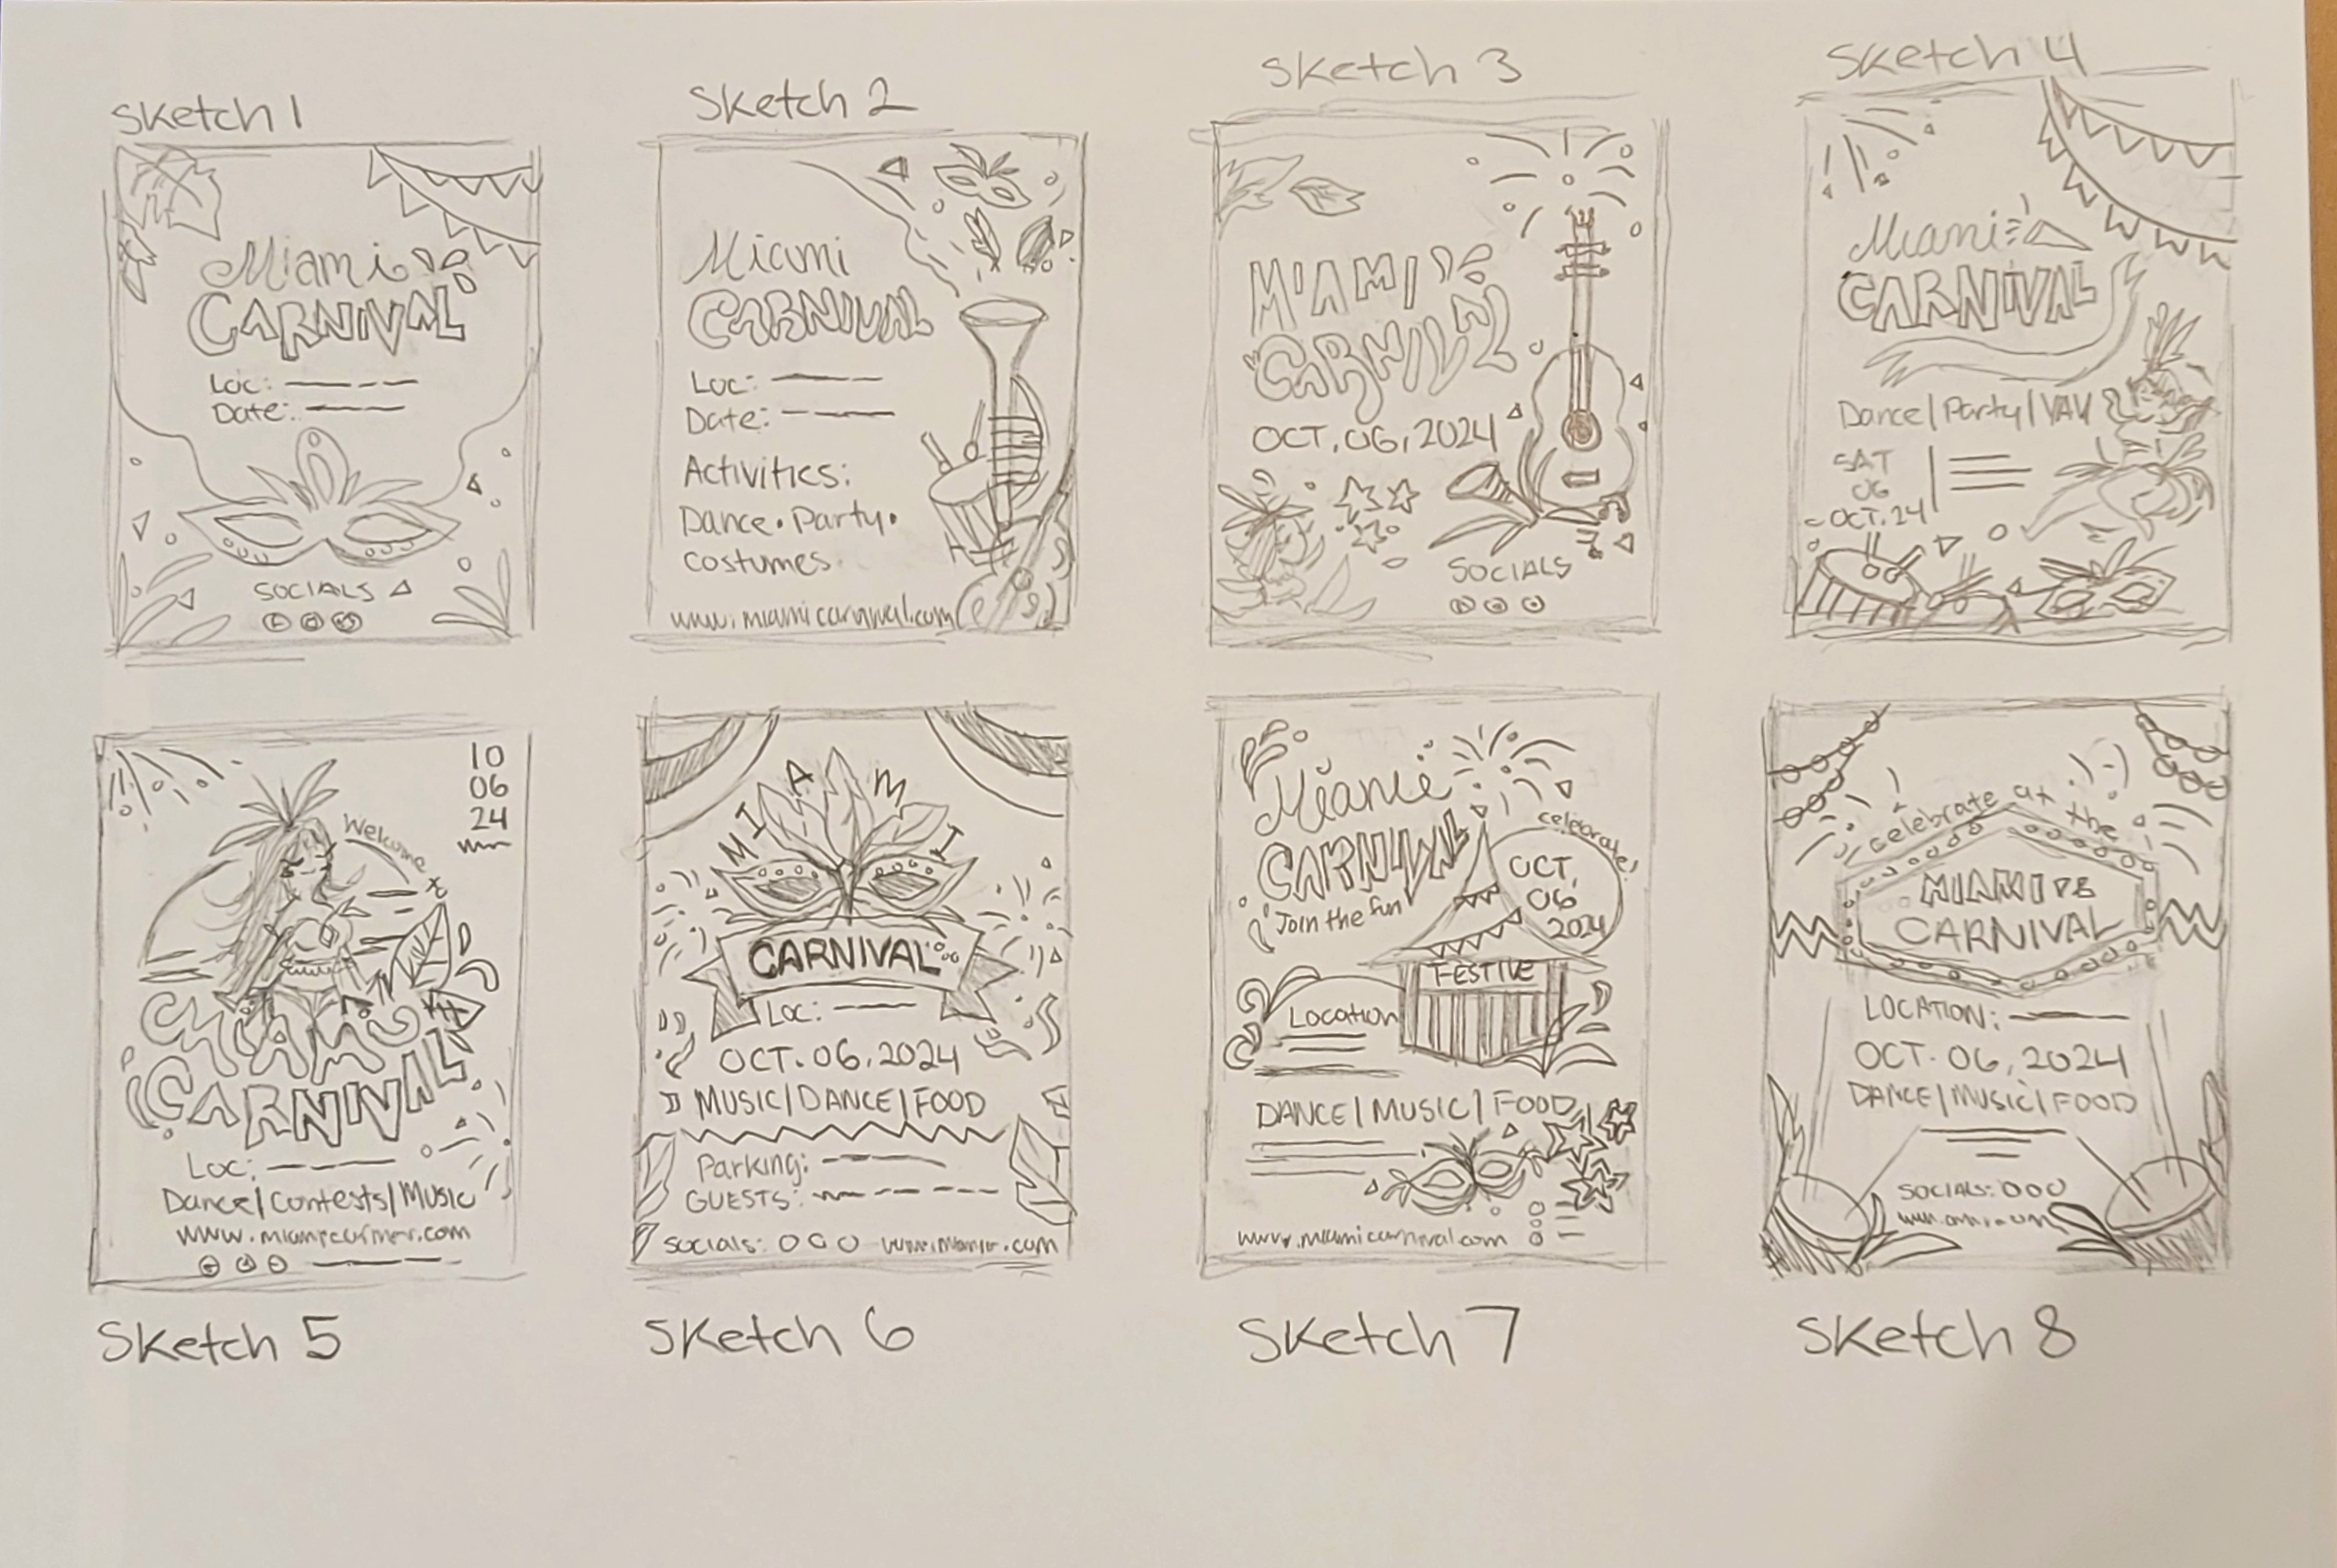 Sketch 1
Miami
CARNIVAL
Loc:
Date:
SOCIALS
Sketch 2
Miami
CARNIVAL
Loc:
Date:
Activities:
Dance • Party •
costumes
www.miamicarnival.com
Sketch 3
MIAMI
CARNIVAL
OCT, 06, 2024
SOCIALS
Sketch 4
Miami
CARNIVAL
Dance | Party |
SAT
06
OCT. 24
10
06
24
Welcome
MIAMI
CARNIVAL
Loc:
Dance | Contests | Music
Sketch 5
MIAMI
CARNIVAL
Loc:
OCT. 06, 2024
MUSIC | DANCE | FOOD
Parking:
GUESTS:
Socials:
Sketch 6
Miami
CARNIVAL
Join the fun
celebrate!
OCT,
06
2024
FESTIVE
Location
DANCE | MUSIC | FOOD
www.miamicarnival.com
Sketch 7
celebrate at the
MIAMI
CARNIVAL
LOCATION:
OCT. 06, 2024
DANCE | MUSIC | FOOD
SOCIALS:
Sketch 8